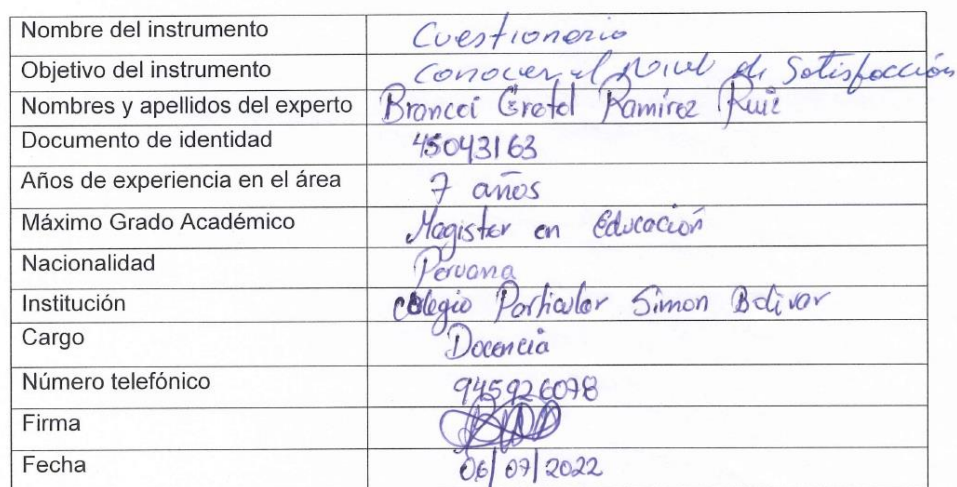 Nombre del instrumento Cuestionario
Objetivo del instrumento Conocer el Nivel de Satisfacción
Nombres y apellidos del experto Brancei Gretel Ramírez Ruiz
Documento de identidad 45043163
Años de experiencia en el área 7 años
Máximo Grado Académico Magister en Educación
Nacionalidad Peruana
Institución Colegio Particular Simon Bolivar
Cargo Docencia
Número telefónico 945926078
Firma
Fecha 06/07/2022